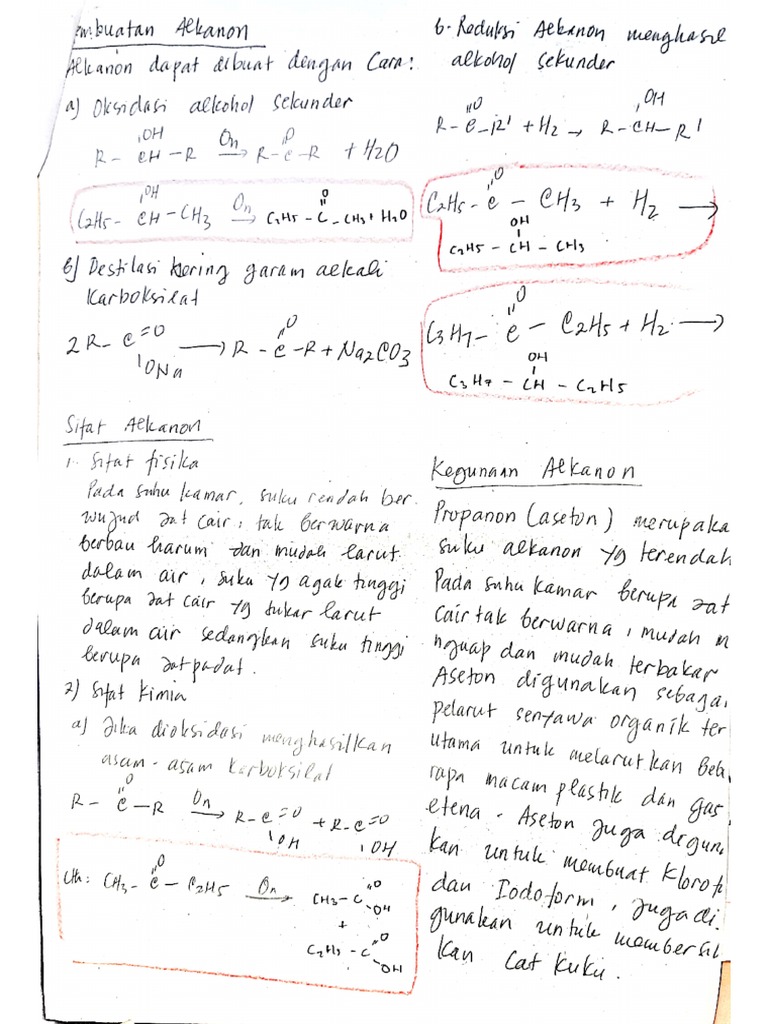 Pembuatan Alkanon
Alkanon dapat dibuat dengan Cara:
a) Oksidasi alkohol sekunder
OH O
R - CH - R On→ R - C - R + H2O
OH O
C2H5 - CH - CH3 On→ C2H5 - C - CH3 + H2O
b) Destilasi kering garam alkali
karboksilat
2 R - C =O → R - C - R + Na2CO3
ONa
Sifat Alkanon
1. Sifat fisika
Pada suhu kamar, suku rendah ber
wujud zat cair, tak berwarna
berbau harum dan mudah larut
dalam air, suku yg agak tinggi
berupa zat cair yg sukar larut
dalam air sedangkan suku tinggi
berupa zat padat.
2) Sifat kimia
a) Jika dioksidasi menghasilkan
asam-asam karboksilat
O
R - C - R On→ R-C=O + R-C=O
OH OH
Cth: CH3 - C - C2H5 On→ CH3 - C O
OH
+
C2H5 - C O
OH
b. Reduksi Alkanon menghasil
alkohol sekunder
O OH
R - C - R' + H2 → R - CH - R'
O
C2H5 - C - CH3 + H2 →
OH
C2H5 - CH - CH3
O
C3H7 - C - C2H5 + H2 →
OH
C3H7 - CH - C2H5
Kegunaan Alkanon
Propanon (aseton) merupaka
suku alkanon yg terendah
Pada suhu kamar berupa zat
cair tak berwarna, mudah m
nguap dan mudah terbakar
Aseton digunakan sebagai
pelarut senyawa organik ter
utama untuk melarutkan Beb
rapa macam plastik dan gas
etena. Aseton juga digun
kan untuk membuat klorof
dan Iodoform, juga di
gunakan untuk membersi
kan cat kuku.